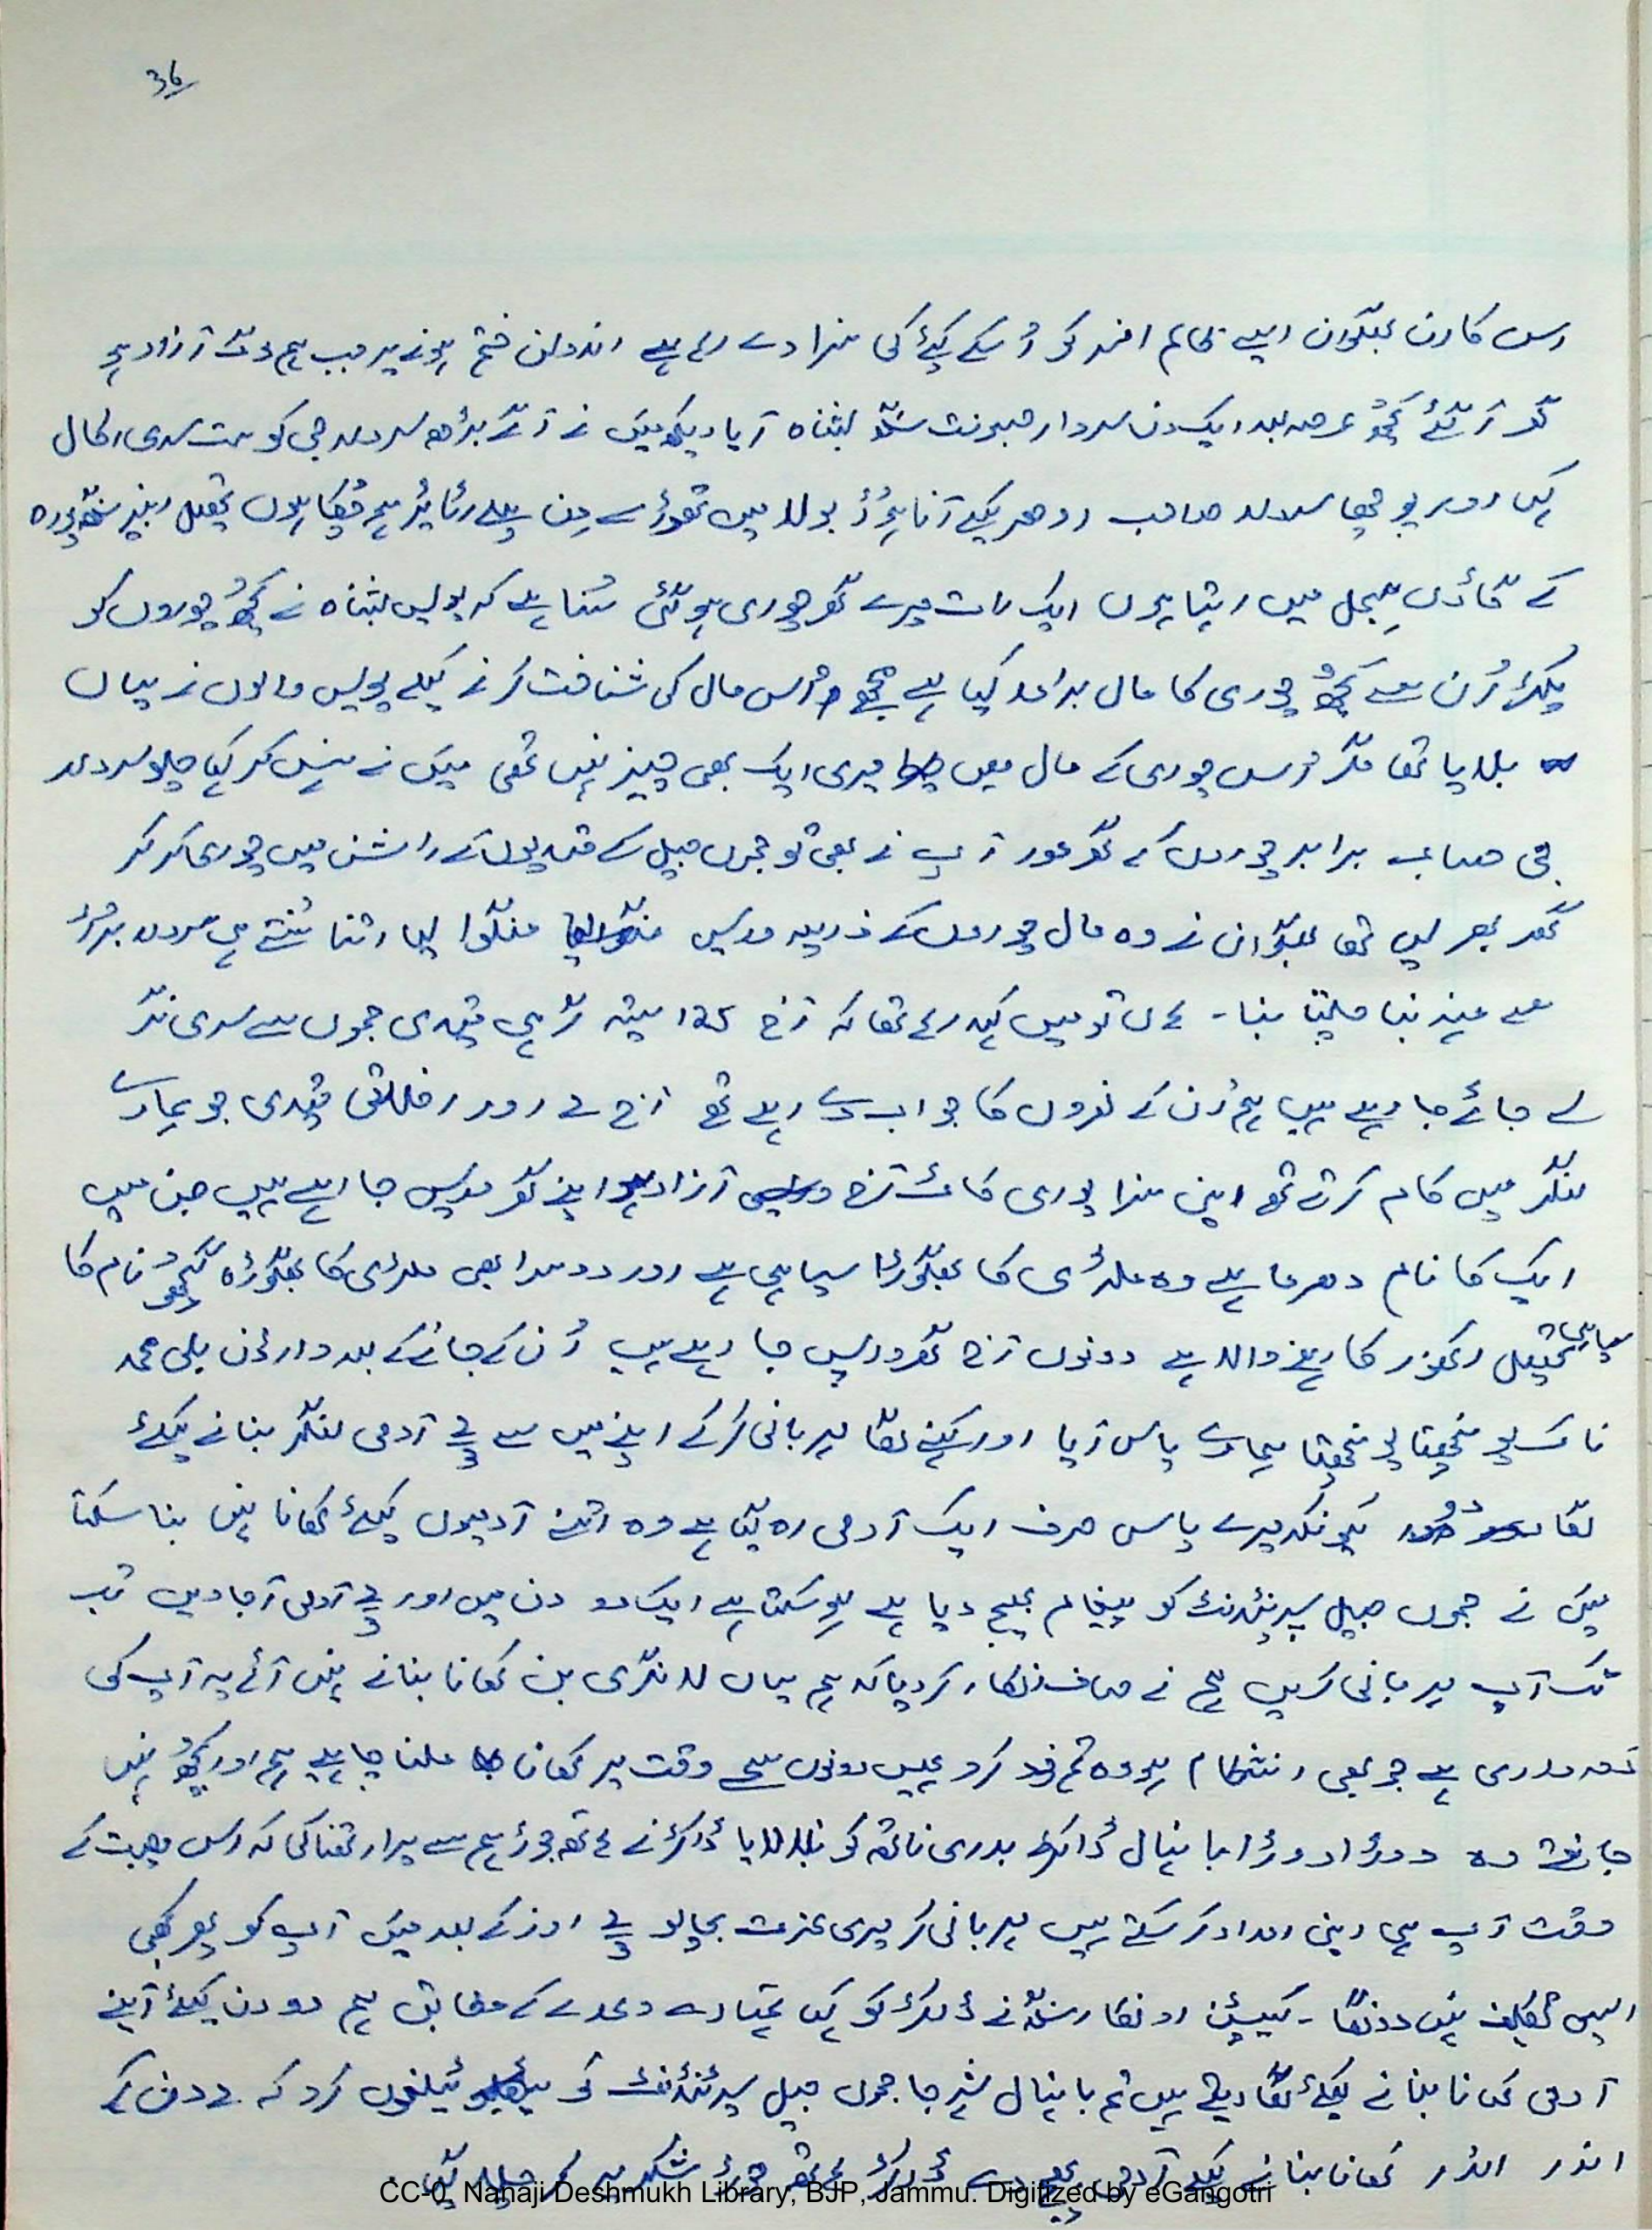 36
اس کارن بھگوان ایسے ظالم افسر کو اُسکے کیئے کی سزا دے رہا ہے اندولن ختم ہونے پر جب ہم لوگ آزاد ہو
گھر آ گئے کچھ عرصہ بعد ایک دن سردار جسونت سنگھ بٹناہ آیا دیکھ میں نے آگے بڑھ سردار جی کو ست سری اکال
کہی اور پوچھا سردار صاحب ادھر کیسے آنا ہوا بولا میں تھوڑے دن پہلے رٹائیر ہو چکا ہوں تحصیل رنبیر سنگھ پورہ
کے گاؤں میں رہتا ہوں ایک رات میرے گھر چوری ہو گئی سُنا ہے کہ پولیس بٹناہ نے کچھ چوروں کو
پکڑ اُن سے کچھ چوری کا مال برامد کیا ہے مجھے اُس مال کی شناخت کرنے کیلے پولیس والوں نے یہاں
بلایا تھا مگر اُس چوری کے مال میں میری ایک بھی چیز نہیں تھی میں نے ہنس کر کہا چلو سردار
جی صاحب برابر چوروں کے گھر مور آپ نے بھی تو جموں جیل کے قیدیوں کے راشن میں چوری کر کر
گھر بھر لیا تھا بھگوان نے وہ مال چوروں کے ذریعہ واپس منگوا لیا اتنا سُنتے ہی سردار بڑبڑ
سے مینہ بنا چلتا بنا - ہاں تو میں کہہ رہا تھا کہ آج 125 ستیہ گرہی قیدی جموں سے سری نگر
لے جائے جا رہے ہیں ہم اُن کے نعروں کا جواب دے رہے تھے آج 2 اور اخلاقی قیدی جو ہمارے
لنگر میں کام کرتے تھے اپنی سزا پوری کاٹ آج آزاد ہو اپنے گھر واپس جا رہے ہیں جن میں
ایک کا نام دھرما ہے وہ ملٹری کا بھگوڑا سپاہی ہے اور دوسرا بھی ملٹری کا بھگوڑہ کچھو نام کا
سپاہی تحصیل اکھنور کا رہنے والا ہے دونوں آج گھر واپس جا رہے ہیں اُن کے جانے کے بعد وارڈن علی محمد
نائک پونچھتا پونچھتا ہمارے پاس آیا اور کہنے لگا مہربانی کر کے اپنے میں سے 2 آدمی لنگر بنانے کیلئے
لگا دو کیونکہ میرے پاس صرف ایک آدمی رہ گیا ہے وہ اتنے آدمیوں کیلئے کھانا نہیں بنا سکتا
میں نے جموں جیل سپرنٹنڈنٹ کو پیغام بھیج دیا ہے ہو سکتا ہے ایک دو دن میں اور 2 آدمی آ جاویں تب
تک آپ مہربانی کریں ہم نے صاف انکار کر دیا کہ ہم یہاں لانگری بن کھانا بنانے نہیں آئے یہ آپ کی
ذمہ داری ہے جو بھی انتظام ہو وہ تم خود کرو ہمیں دونوں سمے وقت پر کھانا ملنا چاہیے ہم اور کچھ نہیں
جانتے وہ دوڑا دوڑا بانہال ڈاکٹر بدری ناتھ کو بلا لایا ڈاکٹر نے ہاتھ جوڑ ہم سے پرارتھنا کی کہ اس مصیبت کے
وقت آپ ہی اپنی امداد کر سکتے ہیں مہربانی کر میری عزت بچا لو 2 روز کے بعد میں آپ کو پھر کبھی
ایسی تکلیف نہیں دونگا - کیپٹن اونکار سنگھ نے ڈاکٹر کو کہا تمہارے وعدے کے مطابق ہم دو دن کیلئے اپنے
آدمی کھانا بنانے کیلئے لگا دیتے ہیں تم بانہال شہر جا جموں جیل سپرنٹنڈنٹ کو ٹیلیفون کرو کہ 2 دن کے
اندر اندر کھانا بنانے کیلے آدمی بھیج دے ڈاکٹر ہاتھ جوڑ شکریہ کر چلا گیا
CC-0. Nanaji Deshmukh Library, BJP, Jammu. Digitized by eGangotri